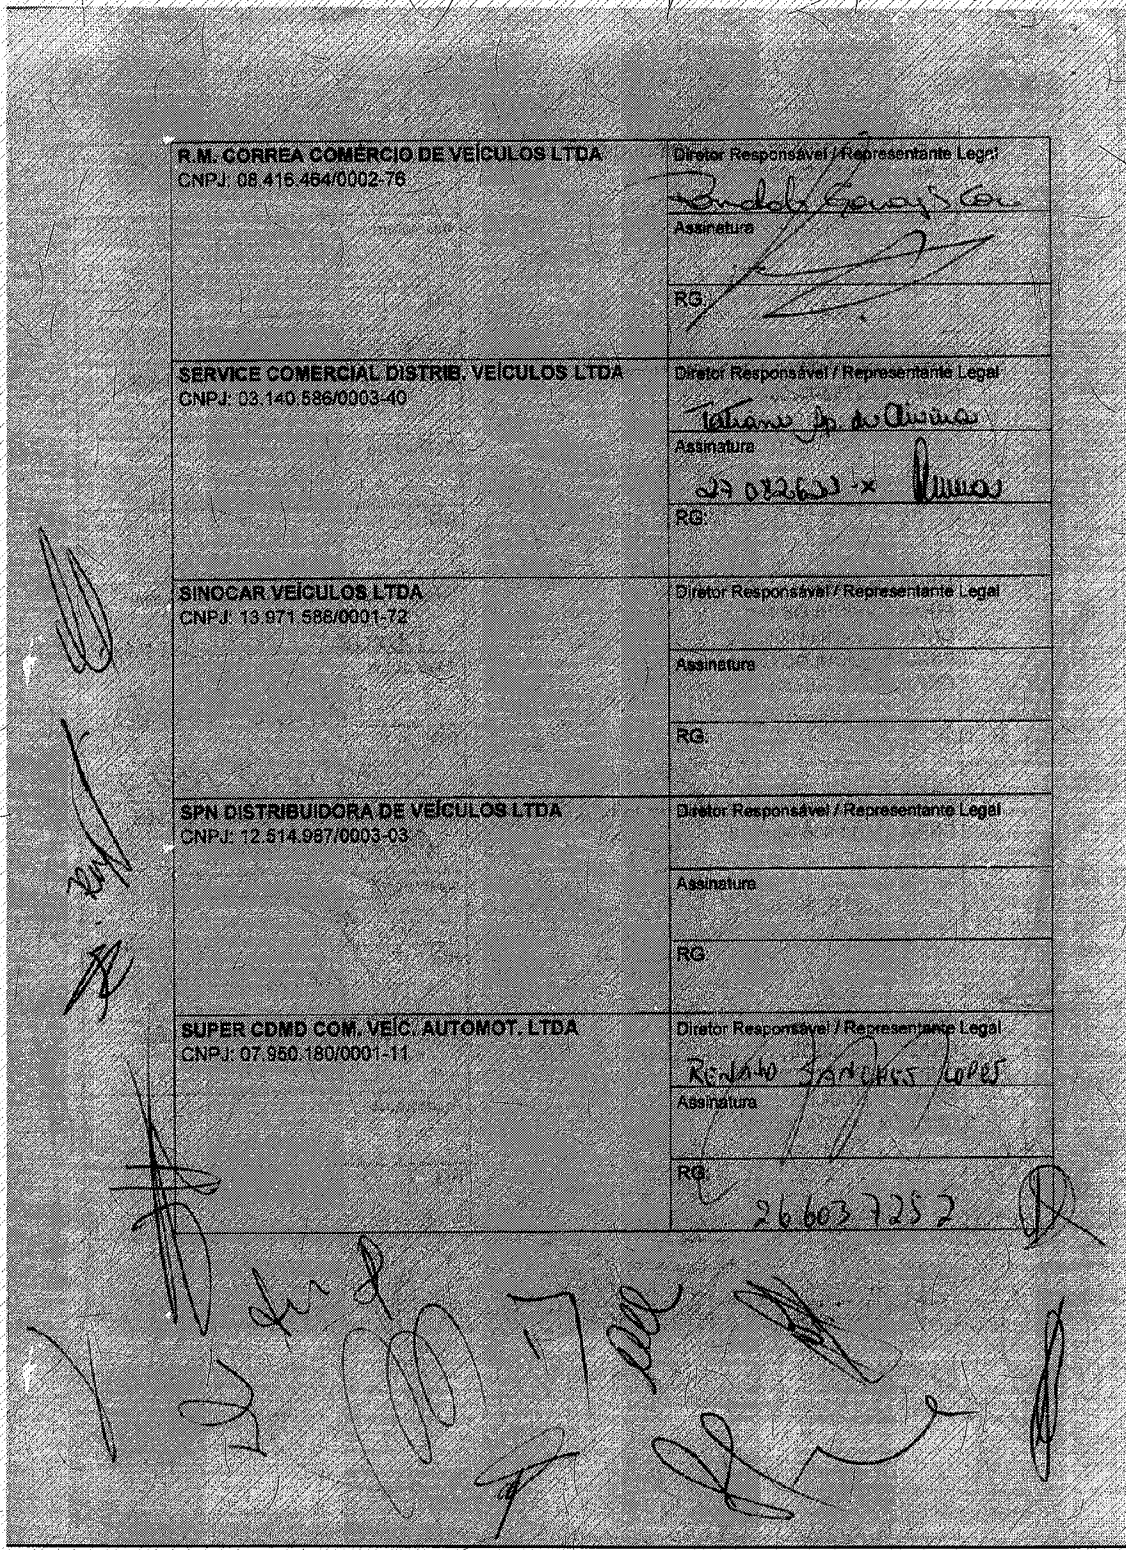 R.M. CORREA COMÉRCIO DE VEÍCULOS LTDA
CNPJ: 08.416.464/0002-76
Diretor Responsável / Representante Legal
Assinatura
RG:
SERVICE COMERCIAL DISTRIB. VEÍCULOS LTDA
CNPJ: 03.140.586/0003-40
Diretor Responsável / Representante Legal
Tatiane Ap. de Oliveira
Assinatura
RG:
SINOCAR VEÍCULOS LTDA
CNPJ: 13.971.588/0001-72
Diretor Responsável / Representante Legal
Assinatura
RG:
SPN DISTRIBUIDORA DE VEÍCULOS LTDA
CNPJ: 12.514.987/0003-03
Diretor Responsável / Representante Legal
Assinatura
RG:
SUPER CDMD COM. VEÍC. AUTOMOT. LTDA
CNPJ: 07.950.180/0001-11
Diretor Responsável / Representante Legal
RENATO SANCHES LOPES
Assinatura
RG:
266037252